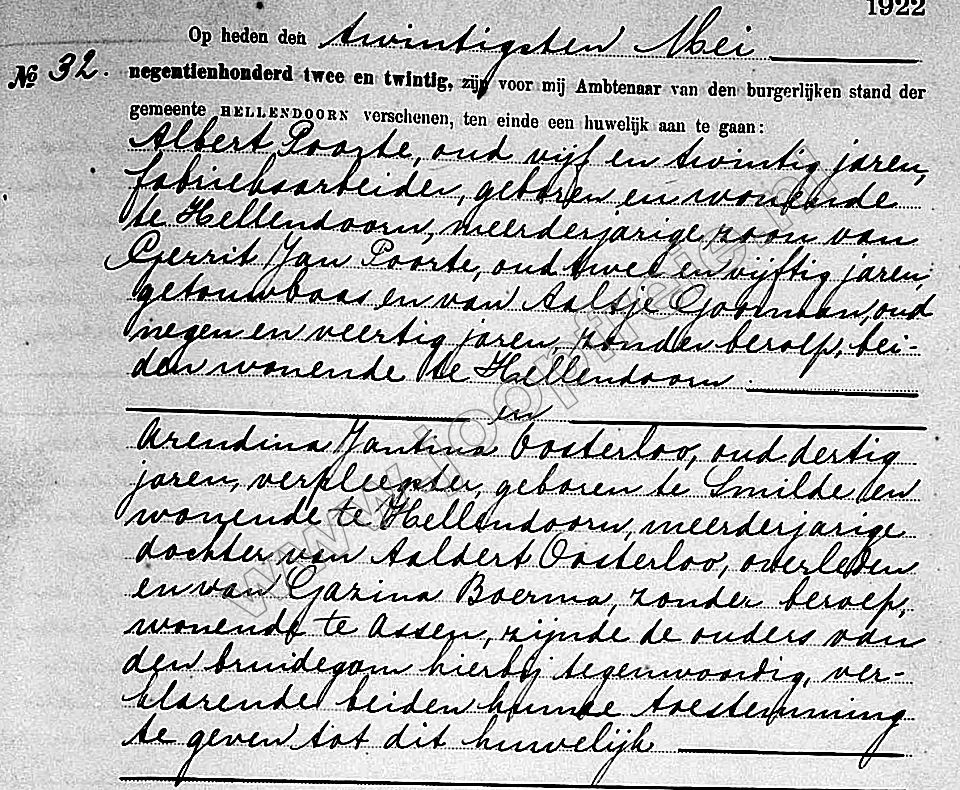 1922
Op heden den twintigsten Mei
No 32.
negentienhonderd twee en twintig, zijn voor mij Ambtenaar van den burgerlijken stand der
gemeente HELLENDOORN verschenen, ten einde een huwelijk aan te gaan:
Albert Poorte, oud vijf en twintig jaren,
fabrieksarbeider, geboren en wonende
te Hellendoorn, meerderjarige zoon van
Gerrit Jan Poorte, oud twee en vijftig jaren,
getouwbaas en van Aaltje Goorman, oud
negen en veertig jaren, zonder beroep, bei-
den wonende te Hellendoorn
en
Arendina Jantina Oosterloo, oud dertig
jaren, verpleegster, geboren te Smilde en
wonende te Hellendoorn, meerderjarige
dochter van Aaldert Oosterloo, overleden
en van Gazina Boerma, zonder beroep,
wonende te Assen, zijnde de ouders van
den bruidegom hierbij tegenwoordig, ver-
klarende beiden hunne toestemming
te geven tot dit huwelijk